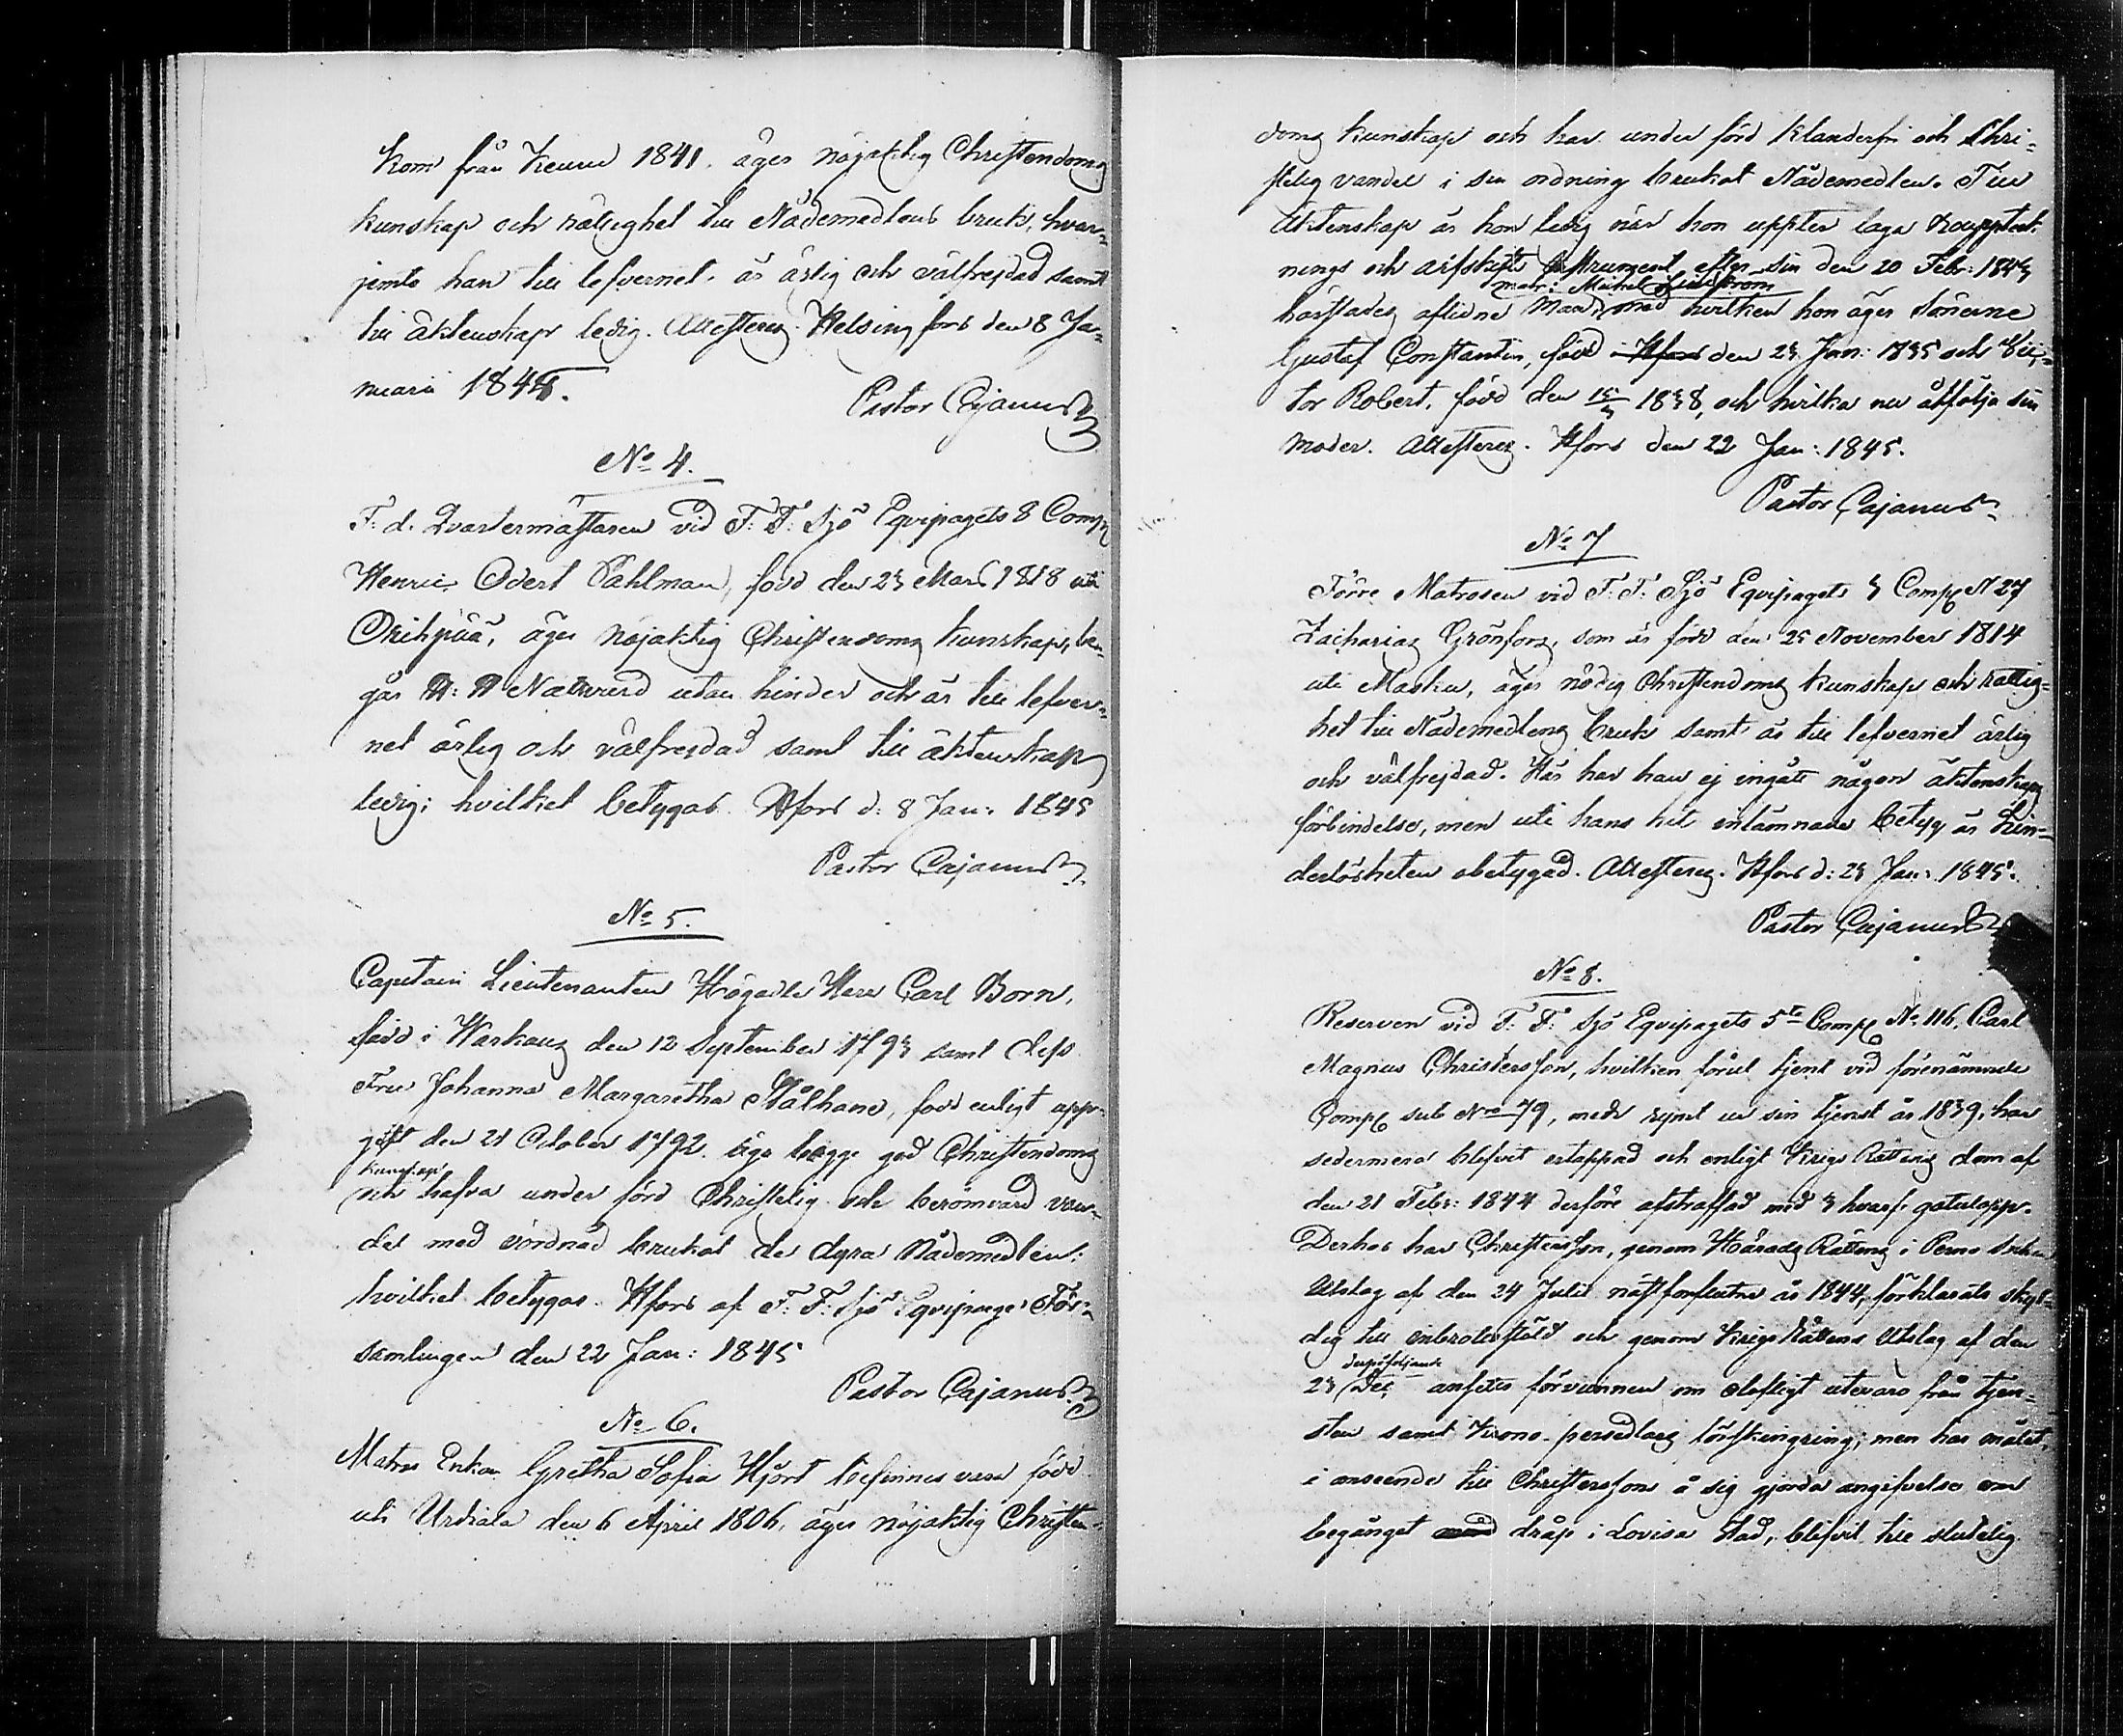 kom från Keuru 1841. äger nöjaktig Christendoms
kunskap och rättighet till Nådemedlens bruk, hvar-
jemte han till lefvernet är ärlig och välfrejdad samt
till äktenskap ledig. Attesteras. Helsingfors den 8 Ja-
nuarii 1845.
Pastor Cajanus
No 4.
F. d. Qvartermästaren vid F: F: Sjö Eqvipagets 8 Comp
Henric Odert Pahlman, född den 23 Mars 1818 uti
Orihpää, äger nöjaktig Christendoms kunskap, be-
går H: H Nattvard utan hinder och är till lefver-
net ärlig och välfrejdad samt till äktenskap
ledig; hvilket betygas. Hfors d: 8 Jan: 1845
Pastor Cajanus
No 5.
Capitain Lieutenanten Högädle Herr Carl Born,
född i Warkaus den 12 September 1793 samt dess
Fru Johanna Margaretha Stålhane, född enligt upp-
gift den 21 October 1792. äga begge god Christendoms
kunskap
och hafva under förd Christelig och berömvärd van-
del med vördnad brukat de dyra Nådemedlen:
hvilket betygas. Hfors af F: F: Sjö Eqvipage För-
samlingen den 22 Jan: 1845
Pastor Cajanus
No 6.
Matros Enkan Gretha Sofia Hjort befinnes vara född
uti Urdiala den 6 April 1806, äger nöjaktig Christen-
doms kunskap och har under förd klanderfri och Chri-
stelig vandel i sin ordning brukat Nådemedlen. Till
Äktenskap är hon ledig när hon uppter laga
nings och arfskifts Instrument efter sin den 20 Febr: 1843
matr: Michel Lindström
härstädes aflidne Man, med hvilken hon äger sönerne
Gustaf Constantin, född i Hfors den 23 Jan: 1835 och Vic-
tor Robert, född den 1838, och hvilka nu åtfölja sin
moder. Attesteras. Hfors den 22 Jan: 1845.
Pastor Cajanus
No 7
Förre Matrosen vid F: F: Sjö Eqvipagets 3 Comp N 27
Zacharias Grönfors, som är född den 25 November 1814
uti Masku, äger nödig Christendoms kunskap och rättig-
het till Nådemedlens bruk samt är till lefvernet ärlig
och välfrejdad. Här har han ej ingått någon äktenskaps
förbindelse, men uti hans hit inlämnade betyg är hin-
derlösheten obetygad. Attesteras. Hfors d: 23 Jan: 1845.
Pastor Cajanus
No 8.
Reserven vid F: F: Sjö Eqvipagets 5te Comp No 116, Carl
Magnus Christersson, hvilken förut tjent vid förenämnde
Comp sub No 79, med rymt ur sin tjenst år 1839, har
sedermera blifvit ertappad och enligt Krigs Rättens dom af
den 21 Febr: 1844 derföre afstraffad med 3 hvarf gatulopp.
Derhos har Christersson, genom Härads Rättens i Perno Socken
Utslag af den 24 Julii nästförflutne år 1844, förklarats skyl-
dig till inbrottsstöld och genom Krigs Rättens Utslag af den
derpåföljande
23 Dec ansetts förvunnen om olofligt utevaro från tjen-
sten samt Krono-persedlars förskingring; men har målet,
i anseende till Christerssons å sig gjorda angifvelse om
begånget dråp i Lovisa Stad, blifvit till slutelig